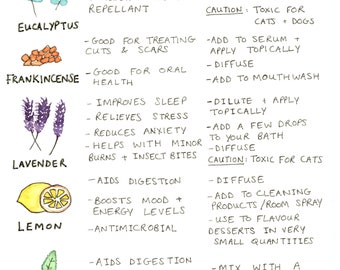 REPELLANT
CAUTION: TOXIC FOR
CATS + DOGS
EUCALYPTUS
- GOOD FOR TREATING
CUTS & SCARS
- GOOD FOR ORAL
HEALTH
- ADD TO SERUM +
APPLY TOPICALLY
- DIFFUSE
- ADD TO MOUTHWASH
FRANKINCENSE
- IMPROVES SLEEP
- RELIEVES STRESS
- REDUCES ANXIETY
- HELPS WITH MINOR
BURNS + INSECT BITES
- DILUTE + APPLY
TOPICALLY
- ADD A FEW DROPS
TO YOUR BATH
- DIFFUSE
CAUTION: TOXIC FOR CATS
LAVENDER
- AIDS DIGESTION
- BOOSTS MOOD +
ENERGY LEVELS
- ANTIMICROBIAL
- DIFFUSE
- ADD TO CLEANING
PRODUCTS/ROOM SPRAY
- USE TO FLAVOUR
DESSERTS IN VERY
SMALL QUANTITIES
LEMON
- AIDS DIGESTION
- MIX WITH A